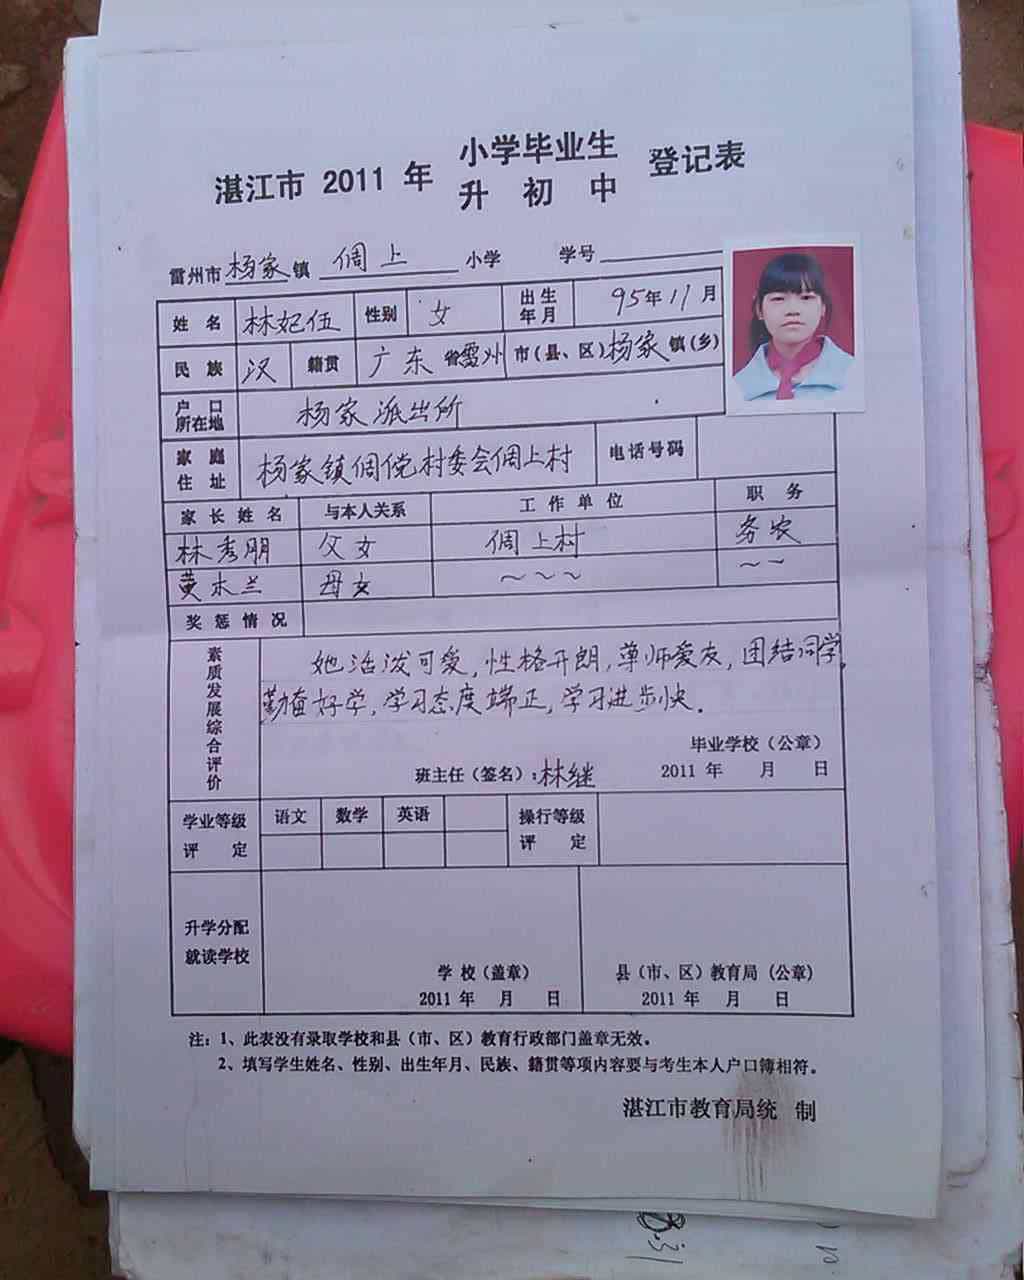 湛江市 2011 年 小学毕业生 登记表
升 初 中
雷州市杨家镇 倜上 小学 学号
姓名 林妃伍 性别 女 出生年月 95年11月
民族 汉 籍贯 广东省雷州市(县、区)杨家镇(乡)
户口所在地 杨家派出所
家庭住址 杨家镇倜傥村委会倜上村 电话号码
家长姓名 与本人关系 工作单位 职务
林秀朋 父女 倜上村 务农
黄木兰 母女 ~~~ ~~
奖惩情况
素质发展综合评价
她活泼可爱,性格开朗,尊师爱友,团结同学,
勤奋好学,学习态度端正,学习进步快.
毕业学校(公章)
班主任(签名):林继 2011 年 月 日
学业等级评定 语文 数学 英语 操行等级评定
升学分配就读学校
学校(盖章) 县(市、区)教育局(公章)
2011 年 月 日 2011 年 月 日
注:1、此表没有录取学校和县(市、区)教育行政部门盖章无效。
2、填写学生姓名、性别、出生年月、民族、籍贯等项内容要与考生本人户口簿相符。
湛江市教育局统 制